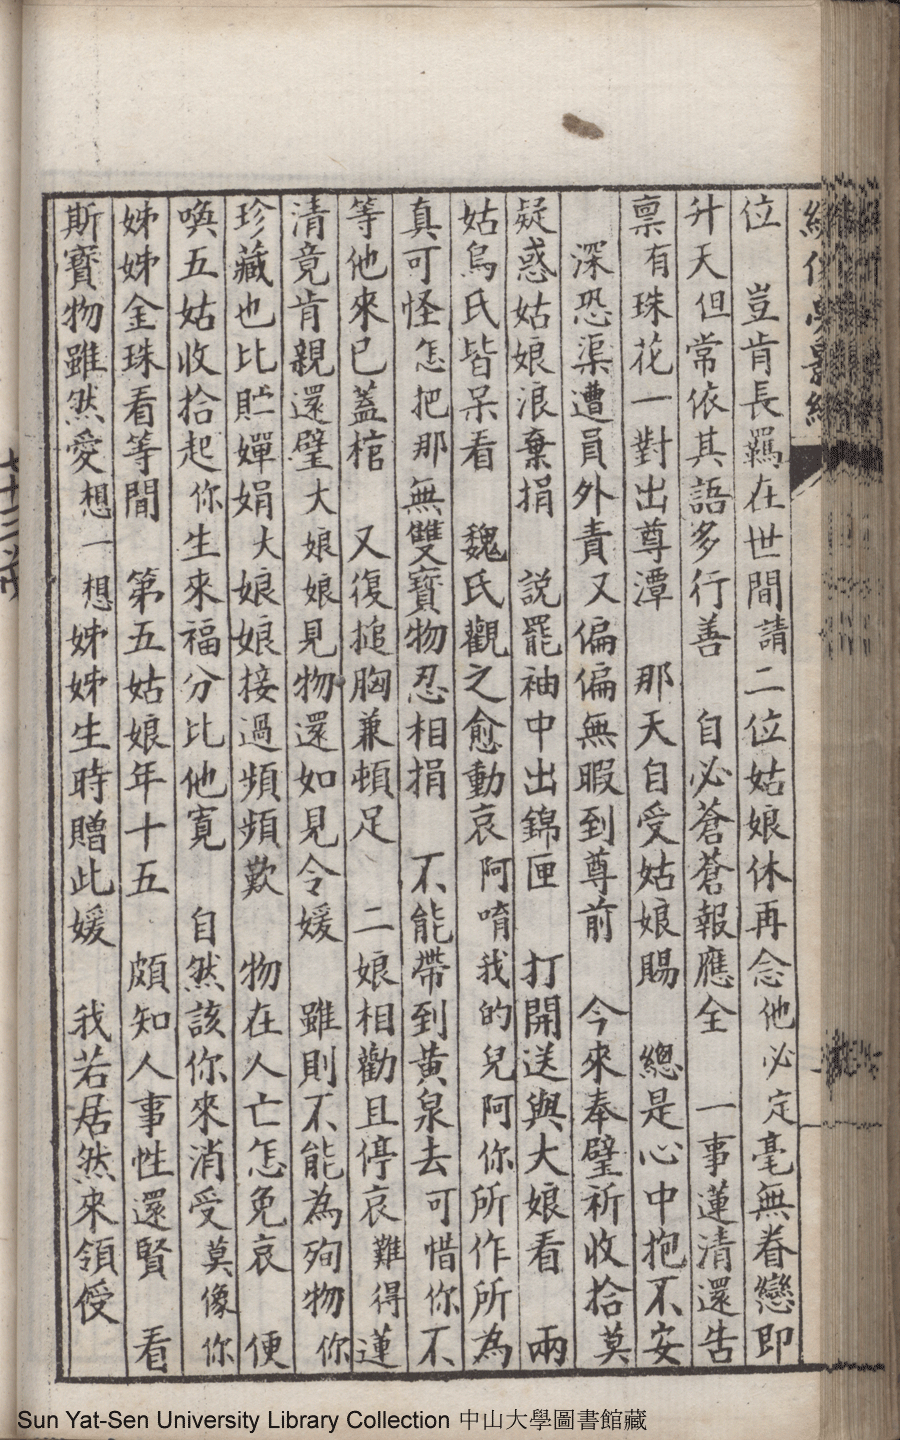 位　豈肯長羈在世間請二位姑娘休再念他必定毫無眷戀即
升天但常依其語多行善　自必蒼蒼報應全　一事蓮清還告
禀有珠花一對出尊潭　那天自受姑娘賜　總是心中抱不安
深恐渠遭員外責又偏偏無暇到尊前　今來奉璧祈收拾莫
疑惑姑娘浪棄捐　説罷袖中出錦匣　打開送與大娘看　兩
姑烏氏皆呆看　魏氏觀之愈動哀阿唷我的兒阿你所作所為
真可怪怎把那無雙寶物忍相捐　不能帶到黄泉去可惜你不
等他來已蓋棺　又復搥胸兼頓足　二娘相勸且停哀難得蓮
清竟肯親還璧大娘娘見物還如見令媛　雖則不能為殉物你
珍藏也比貯嬋娟大娘娘接過頻頻歎　物在人亡怎免哀　便
喚五姑收拾起你生來福分比他寬　自然該你來消受莫像你
姊姊金珠看等閒　第五姑娘年十五　頗知人事性還賢　看
斯寶物雖然愛想一想姊姊生時贈此媛　我若居然來領受
Sun Yat-Sen University Library Collection 中山大學圖書館藏